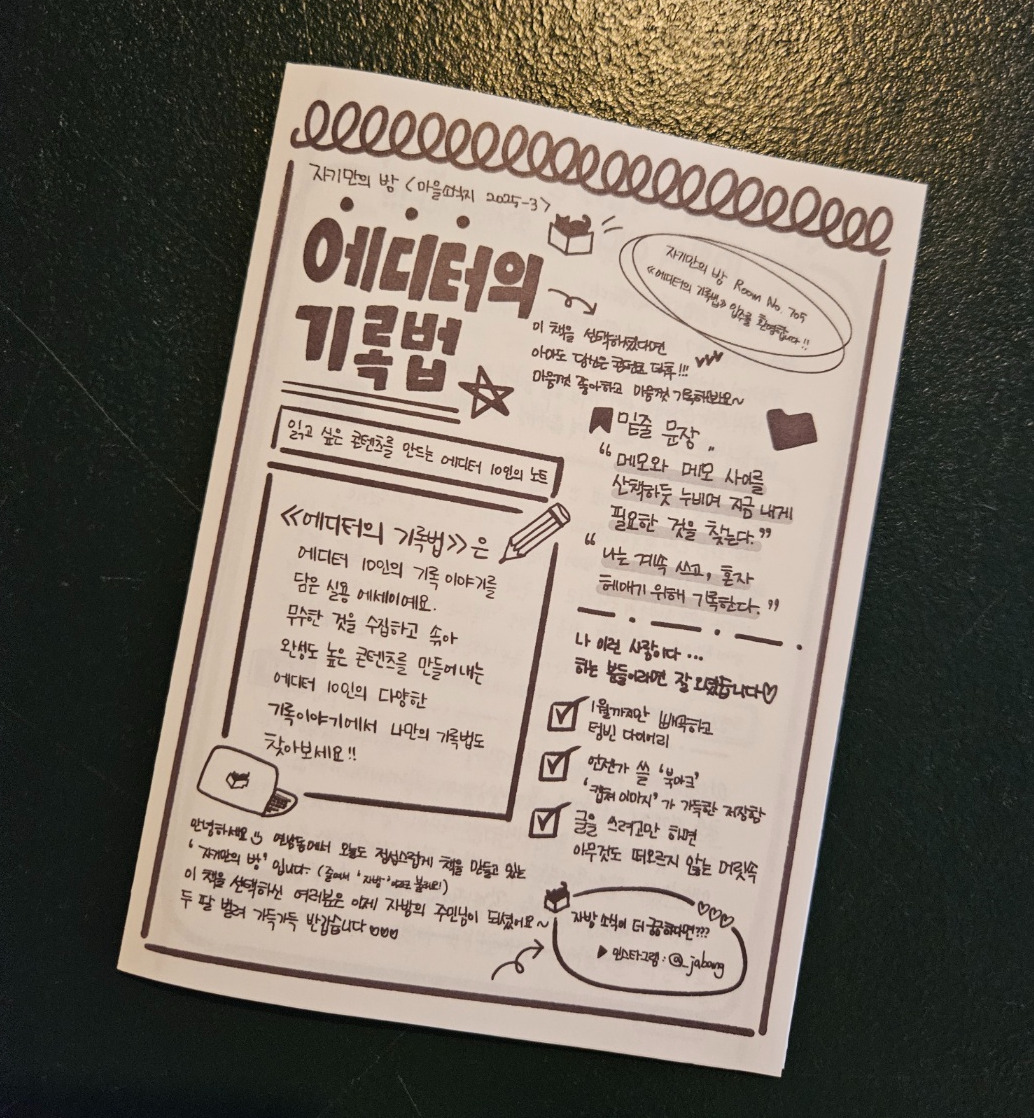 자기만의 방 <마을소식지 2025-3>
에디터의
기록법
자기만의 방 Room No. 705
《에디터의 기록법》 입주를 환영합니다!!
이 책을 선택하셨다면
아마도 당신은 콘텐츠 덕후!!!
마음껏 좋아하고 마음껏 기록해봐요~
읽고 싶은 콘텐츠를 만드는 에디터 10인의 노트
《에디터의 기록법》은
에디터 10인의 기록 이야기를
담은 실용 에세이예요.
무수한 것을 수집하고 솎아
완성도 높은 콘텐츠를 만들어내는
에디터 10인의 다양한
기록이야기에서 나만의 기록법도
찾아보세요!!
밑줄 문장
"메모와 메모 사이를
산책하듯 누비며 지금 내게
필요한 것을 찾는다."
"나는 계속 쓰고, 혼자
헤매기 위해 기록한다."
나 이런 사람이다...
하는 분들이라면 잘 오셨습니다♡
1월까지만 빼곡하고
텅빈 다이어리
언젠가 쓸 '북마크'
'캡쳐 이미지'가 가득한 저장함
글을 쓰려고만 하면
아무것도 떠오르지 않는 머릿속
안녕하세요 연남동에서 오늘도 정성스럽게 책을 만들고 있는
'자기만의 방'입니다. (줄여서 '자방'이라고 불러요)
이 책을 선택하신 여러분은 이제 자방의 주민님이 되셨어요~
두 팔 벌려 가득가득 반갑습니다 ♡♡♡
자방 소식이 더 궁금하다면???
▶ 인스타그램 : @_jabang